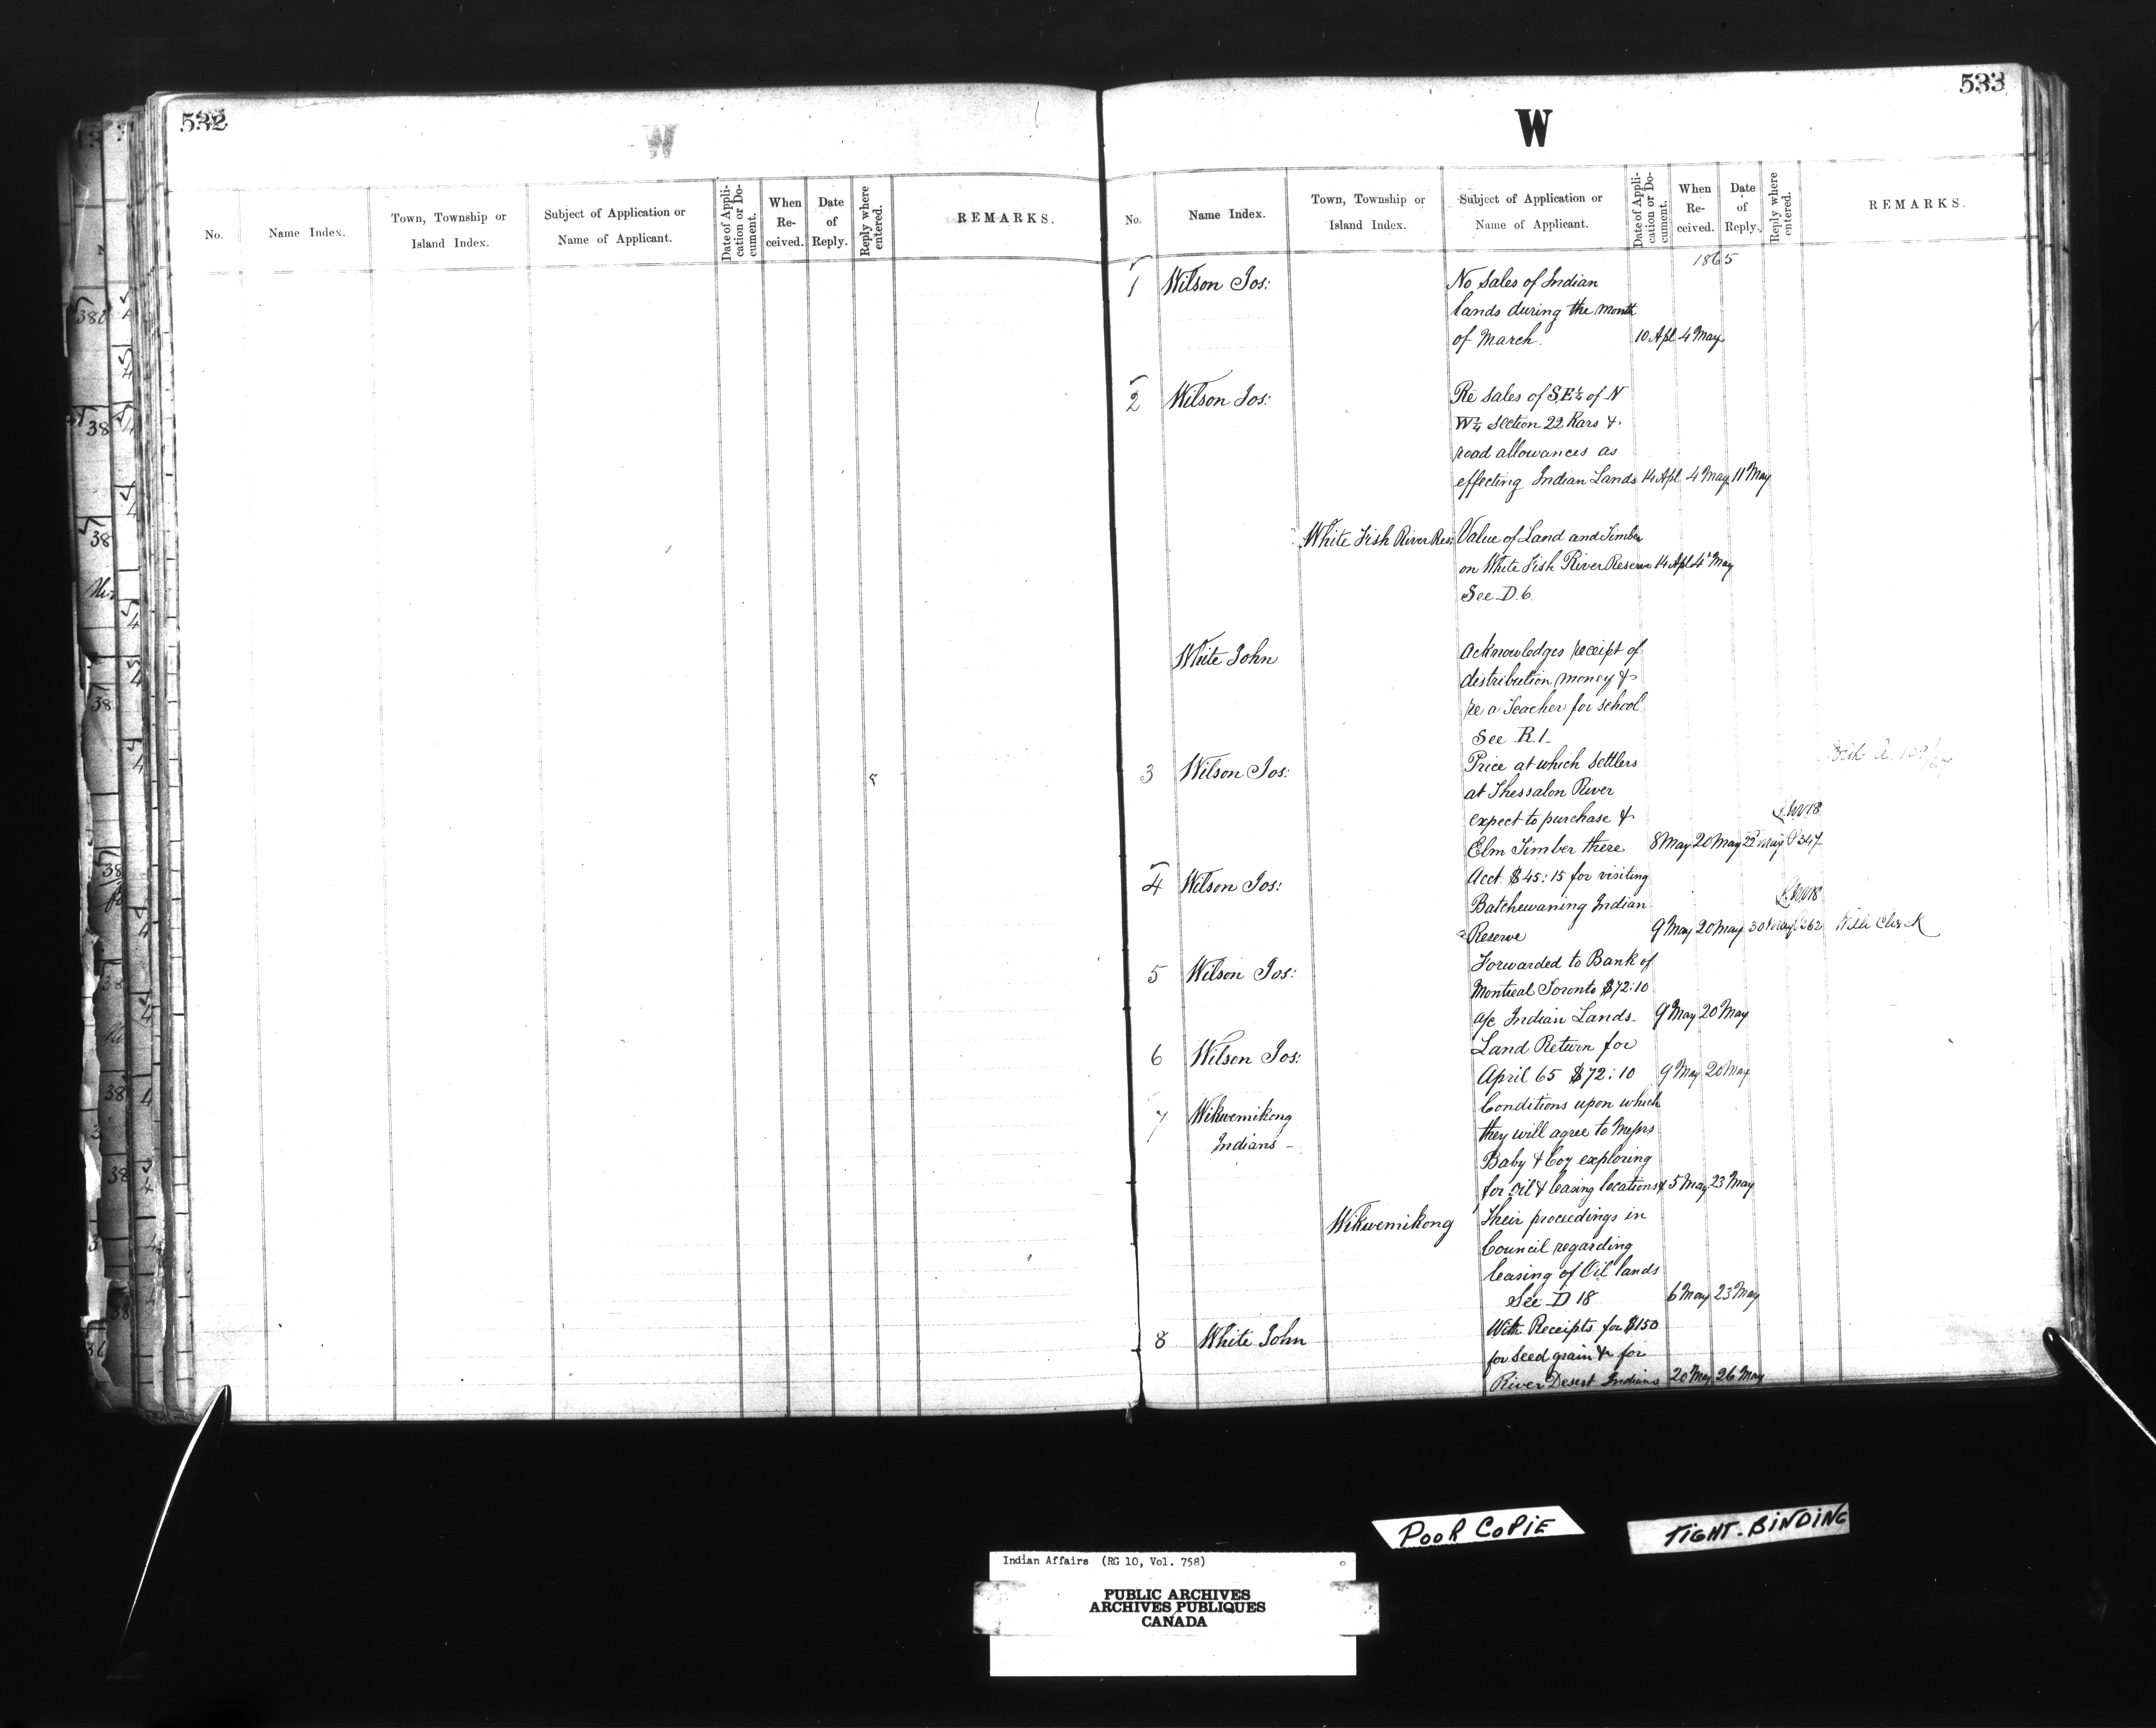 532
W
No.
Name Index.
Town, Township or
Island Index.
Subject of Application or
Name of Applicant.
Date of Appli-
cation or Do-
cument.
When
Re-
ceived.
Date
of
Reply.
Reply where
entered.
REMARKS.
533
W
No.
Name Index.
Town, Township or
Island Index.
Subject of Application or
Name of Applicant.
Date of Appli-
cation or Do-
cument.
When
Re-
ceived.
Date
of
Reply.
Reply where
entered.
REMARKS.
1865
1 Wilson Jos: No Sales of Indian
lands during the Month
of March. 10 Apl 4 May
2 Wilson Jos: Re Sales of S.E¼ of N
W¼ Section 22 Rars &
road allowances as
effecting Indian Lands 14 Apl 4 May 11 May
White Fish River Res: Value of Land and Timber
on White Fish River Reserve 14 Apl 4 May
See D.6.
White John Acknowledges receipt of
distribution money &
re a Teacher for School
See R.1.
3 Wilson Jos: Price at which Settlers
at Thessalon River
expect to purchase &
Elm Timber there 8 May 20 May 22 May P347
4 Wilson Jos: Acct $45:15 for visiting
Batchewaning Indian
Reserve 9 May 20 May 30 May With Clark
5 Wilson Jos: Forwarded to Bank of
Montreal Toronto $72:10
a/c Indian Lands. 9 May 20 May
6 Wilson Jos: Land Return for
April 65 $72:10 9 May 20 May
7 Wikwemikong Conditions upon which
Indians - they will agree to Messrs
Baby & Coy exploring
for Oil & leasing locations & 5 May 23 May
Wikwemikong Their proceedings in
Council regarding
leasing of Oil lands
See D 18 6 May 23 May
8 White John With Receipts for $150
for Seed grain & for
River Desert Indians 20 May 26 May
POOR COPIE
TIGHT-BINDING
Indian Affairs (RG 10, Vol. 758)
PUBLIC ARCHIVES
ARCHIVES PUBLIQUES
CANADA